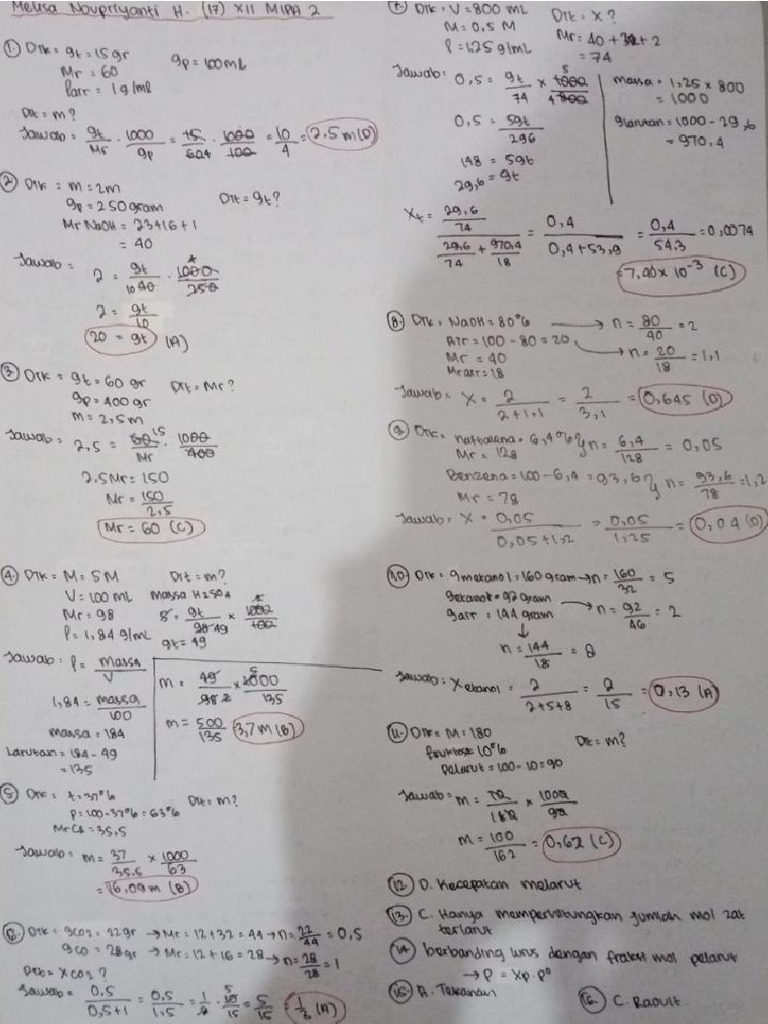 Melisa Novpriyanti H. (17) XII MIPA 2
① Dik = gt = 15 gr
gp = 100 mL
Mr = 60
ρair = 1 g/ml
Dit = m?
Jawab = gt/Mr . 1000/gp = 15/60 4 . 1000/100 = 10/4 = 2,5 m (D)
② Dik = m = 2m
gp = 250 gram
Dit = gt?
Mr NaOH = 23+16+1
= 40
Jawab =
2 = gt/10 40 . 4 1000/250
2 = gt/10
20 = gt (A)
③ Dik = gt = 60 gr
Dit = Mr?
gp = 400 gr
m = 2,5 m
Jawab = 2,5 = 60 15/Mr . 1000/400
2,5 Mr = 150
Mr = 150/2,5
Mr = 60 (C)
④ Dik = M = 5M
Dit = m?
V = 100 mL
massa H2SO4
Mr = 98
5 = gt/98 49 × 1000/100
ρ = 1,84 g/mL
gt = 49
Jawab = ρ = massa/V
1,84 = massa/100
massa = 184
Larutan = 184 - 49
= 135
m = 49/98 2 × 5 1000/135
m = 500/135 3,7 m (B)
⑤ Dik = t = 37%
Dit = m?
p = 100 - 37% = 63%
Mr Cl = 35,5
Jawab = m = 37/35,5 × 1000/63
= 16,09 m (B)
⑥ Dik = gCO2 = 22 gr → Mr = 12 + 32 = 44 → n = 22/44 = 0,5
gCO = 28 gr → Mr = 12 + 16 = 28 → n = 28/28 = 1
Dit = x CO2 ?
Jawab = 0,5/0,5+1 = 0,5/1,5 = 5/15 = 1/3 (A)
⑦ Dik = V = 800 mL
Dit = x ?
M = 0,5 M
Mr = 40 + 32 + 2
ρ = 1,25 g/mL
= 74
Jawab: 0,5 = gt/74 × 5 1000/4 800
0,5 = 5gt/296
148 = 5gt
29,6 = gt
massa = 1,25 × 800
= 1000
glarutan = 1000 - 29,6
= 970,4
Xt = 29,6/74 / 29,6/74 + 970,4/18 = 0,4/0,4+53,9 = 0,4/54,3 = 0,0074
= 7,40 × 10⁻³ (C)
⑧ Dik = NaOH = 80% → n = 80/40 = 2
Air = 100 - 80 = 20 → n = 20/18 = 1,1
Mr = 40
Mr air = 18
Jawab = X = 2/2+1,1 = 2/3,1 = 0,645 (D)
⑨ Dik = naftalena = 6,4% } n = 6,4/128 = 0,05
Mr = 128
Benzena = 100 - 6,4 = 93,6 } n = 93,6/78 = 1,2
Mr = 78
Jawab = X = 0,05/0,05+1,2 = 0,05/1,25 = 0,04 (D)
⑩ Dik = gmetanol = 160 gram → n = 160/32 = 5
getanol = 92 gram → n = 92/46 = 2
gair = 144 gram
↓
n = 144/18 = 8
Jawab = X etanol = 2/2+5+8 = 2/15 = 0,13 (A)
⑪ Dik = M = 180
Dit = m?
fruktosa = 10%
pelarut = 100 - 10 = 90
Jawab = m = 10/180 × 1000/90
m = 100/162 = 0,62 (C)
⑫ D. Kecepatan melarut
⑬ C. Hanya memperhitungkan jumlah mol zat
terlarut
⑭ berbanding lurus dengan fraksi mol pelarut
→ P = Xp . P°
⑮ A. Tekanan
⑯ C. Raoult